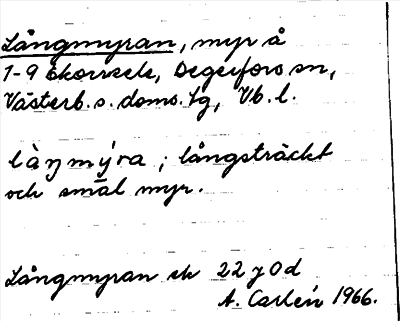 Långmyran, myr å
1-9 Ekorrsele, Degerfors sn,
Västerb. s. doms. lg, Vb. l.
làŋmýra ; långsträckt
och smal myr.
Långmyran ek 22 J 0d
A. Carlén 1966.